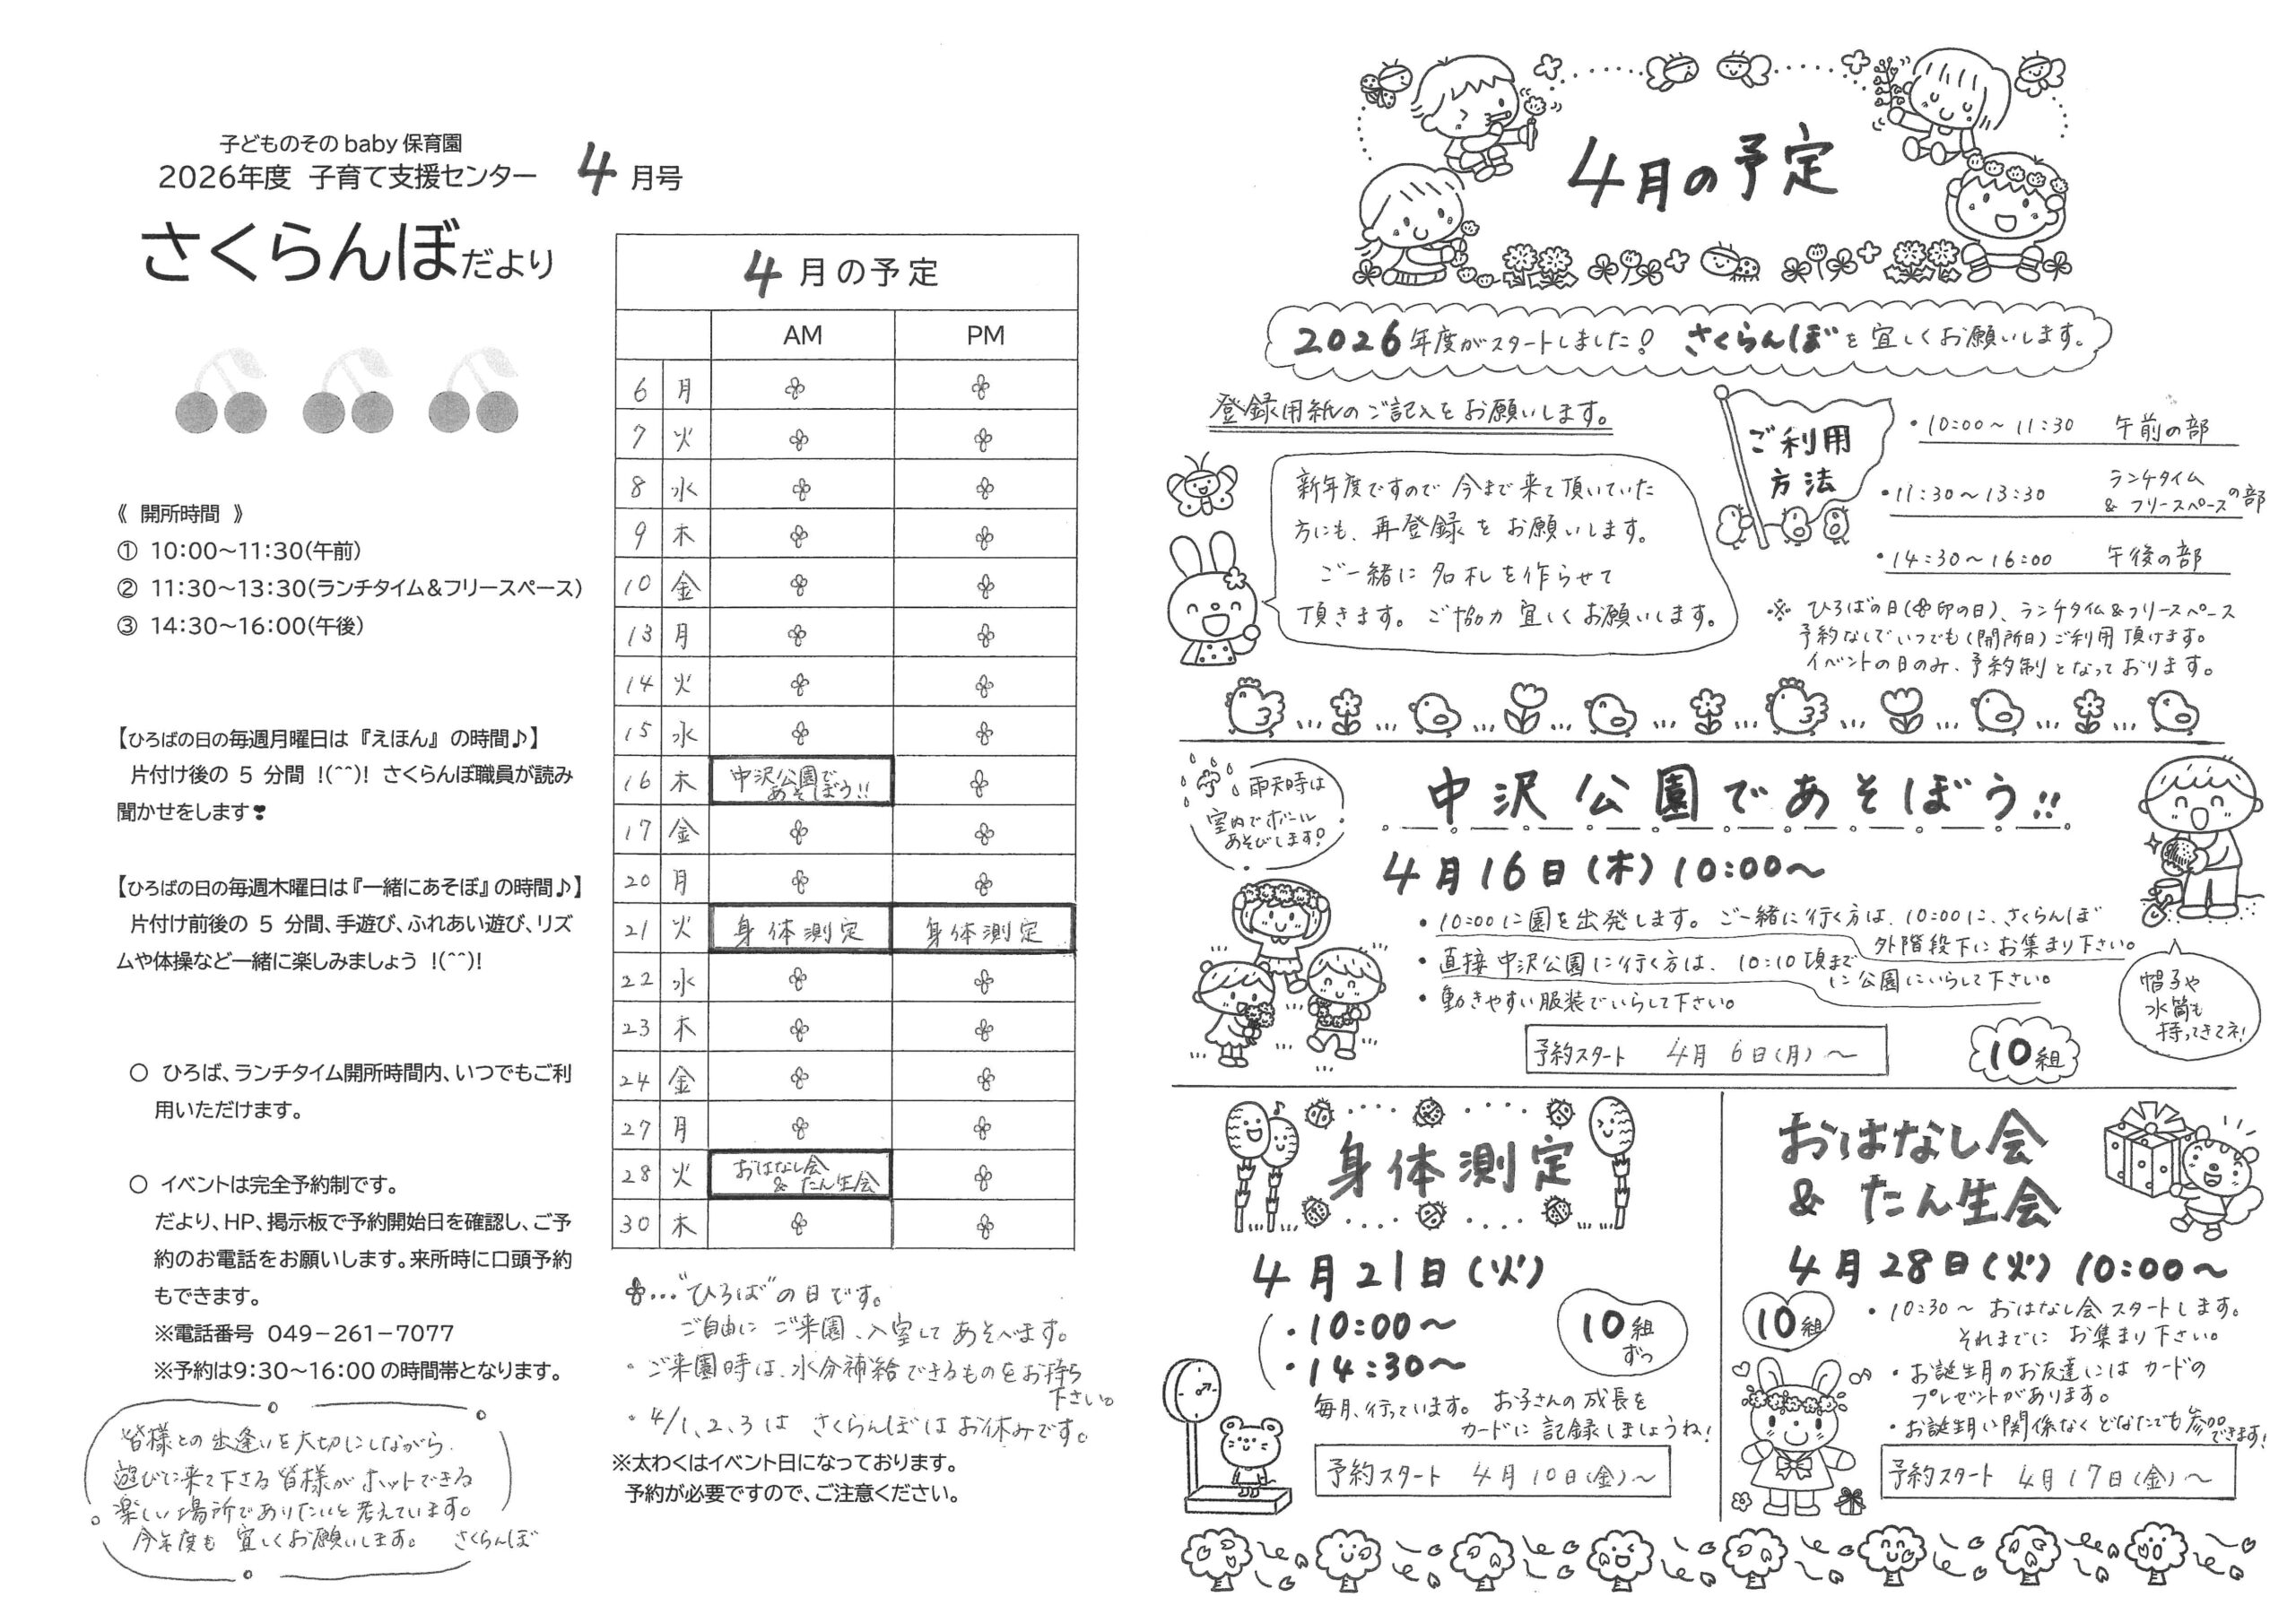 子どものその baby 保育園
2026年度 子育て支援センター 4 月号
さくらんぼだより
《 開所時間 》
① 10:00～11:30(午前)
② 11:30～13:30(ランチタイム＆フリースペース)
③ 14:30～16:00(午後)
【ひろばの日の毎週月曜日は『えほん』の時間♪】
片付け後の 5 分間 !(^^)! さくらんぼ職員が読み
聞かせをします❣
【ひろばの日の毎週木曜日は『一緒にあそぼ』の時間♪】
片付け前後の 5 分間、手遊び、ふれあい遊び、リズ
ムや体操など一緒に楽しみましょう !(^^)!
○ ひろば、ランチタイム開所時間内、いつでもご利
用いただけます。
○ イベントは完全予約制です。
だより、HP、掲示板で予約開始日を確認し、ご予
約のお電話をお願いします。来所時に口頭予約
もできます。
※電話番号 049－261－7077
※予約は9:30～16:00 の時間帯となります。
皆様との出逢いを大切にしながら、
遊びに来て下さる皆様がホットできる
楽しい場所でありたいと考えています。
今年度も 宜しくお願いします。 さくらんぼ
4 月の予定
AM PM
6 月
7 火
8 水
9 木
10 金
13 月
14 火
15 水
16 木 中沢公園であそぼう!!
17 金
20 月
21 火 身体測定 身体測定
22 水
23 木
24 金
27 月
28 火 おはなし会 & たん生会
30 木
…"ひろば"の日です。
ご自由に ご来園、入室して あそべます。
・ご来園時は、水分補給できるものをお持ち
下さい。
・4/1、2、3は さくらんぼは お休みです。
※太わくはイベント日になっております。
予約が必要ですので、ご注意ください。
4月の予定
2026年度がスタートしました! さくらんぼを宜しくお願いします。
登録用紙のご記入をお願いします。
新年度ですので 今まで来て頂いていた
方にも、再登録を お願いします。
ご一緒に 名札を作らせて
頂きます。ご協力 宜しくお願いします。
ご利用
方法
・10:00～11:30 午前の部
・11:30～13:30 ランチタイム
& フリースペースの部
・14:30～16:00 午後の部
※ ひろばの日(印の日)、ランチタイム&フリースペース
予約なしでいつでも(開所日)ご利用頂けます。
イベントの日のみ、予約制となっております。
雨天時は
室内でボール
あそびします!
中沢公園であそぼう!!
4月16日(木) 10:00～
・10:00に園を出発します。ご一緒に行く方は、10:00に、さくらんぼ
外階段下にお集まり下さい。
・直接中沢公園に行く方は、10:10頃まで
に公園にいらして下さい。
・動きやすい服装でいらして下さい。
帽子や
水筒も
持ってきてネ!
予約スタート 4月 6日(月)～
10組
身体測定
4月21日(火)
・10:00～
・14:30～
10組
ずつ
毎月、行っています。お子さんの成長を
カードに 記録しましょうね!
予約スタート 4月10日(金)～
おはなし会
& たん生会
4月28日(火) 10:00～
10組
・10:30～ おはなし会 スタートします。
それまでに お集まり下さい。
・お誕生月のお友達には カードの
プレゼントがあります。
・お誕生月に関係なく どなたでも参加できます!
予約スタート 4月17日(金)～